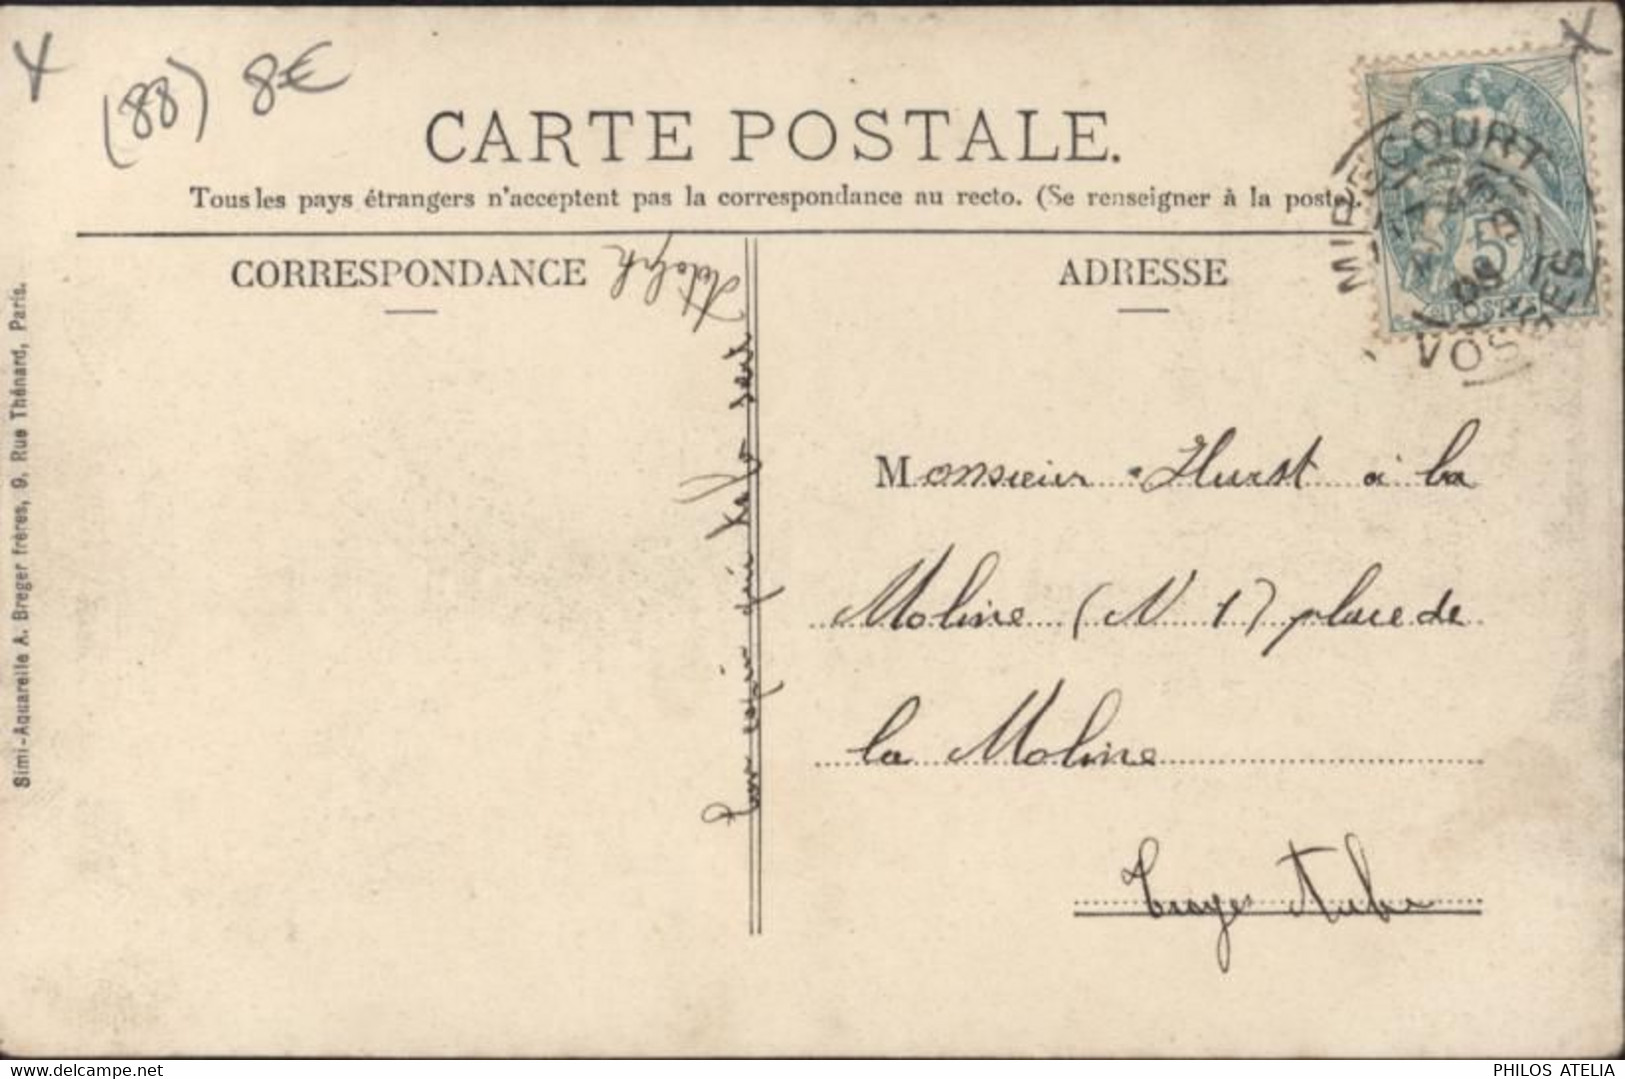 (88) 8€
CARTE POSTALE.
Tous les pays étrangers n'acceptent pas la correspondance au recto. (Se renseigner à la poste).
CORRESPONDANCE
ADRESSE
MIRECOURT
VOSGES
5
POSTES
Simi-Aquarelle A. Breger frères, 9, Rue Thénard, Paris.
Adolph
Monsieur Hurst à la
Moline (N 1) place de
la Moline
Troyes Aube
delcampe.net
PHILOS ATELIA